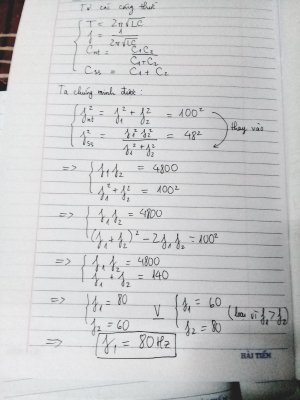 Từ các công thức
{ T = 2π√LC
f = 1 / 2π√LC
C_nt = C₁C₂ / C₁+C₂
C_ss = C₁ + C₂
Ta chứng minh được:
{ f²_nt = f₁² + f₂² = 100²
f²_ss = f₁² f₂² / f₁² + f₂² = 48²
thay vào
=> { f₁f₂ = 4800
f₁² + f₂² = 100²
=> { f₁f₂ = 4800
(f₁ + f₂)² - 2f₁f₂ = 100²
=> { f₁f₂ = 4800
f₁ + f₂ = 140
=> { f₁ = 80 V { f₁ = 60
f₂ = 60 f₂ = 80 (loại vì f₁ > f₂)
=> f₁ = 80 Hz
HẢI TIẾN